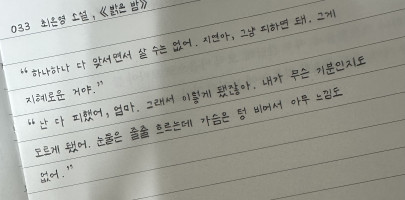 033 최은영 소설, 《밝은 밤》
“하나하나 다 맞서면서 살 수는 없어. 지연아, 그냥 피하면 돼. 그게
지혜로운 거야.”
“난 다 피했어, 엄마. 그래서 이렇게 됐잖아. 내가 무슨 기분인지도
모르게 됐어. 눈물은 줄줄 흐르는데 가슴은 텅 비어서 아무 느낌도
없어.”